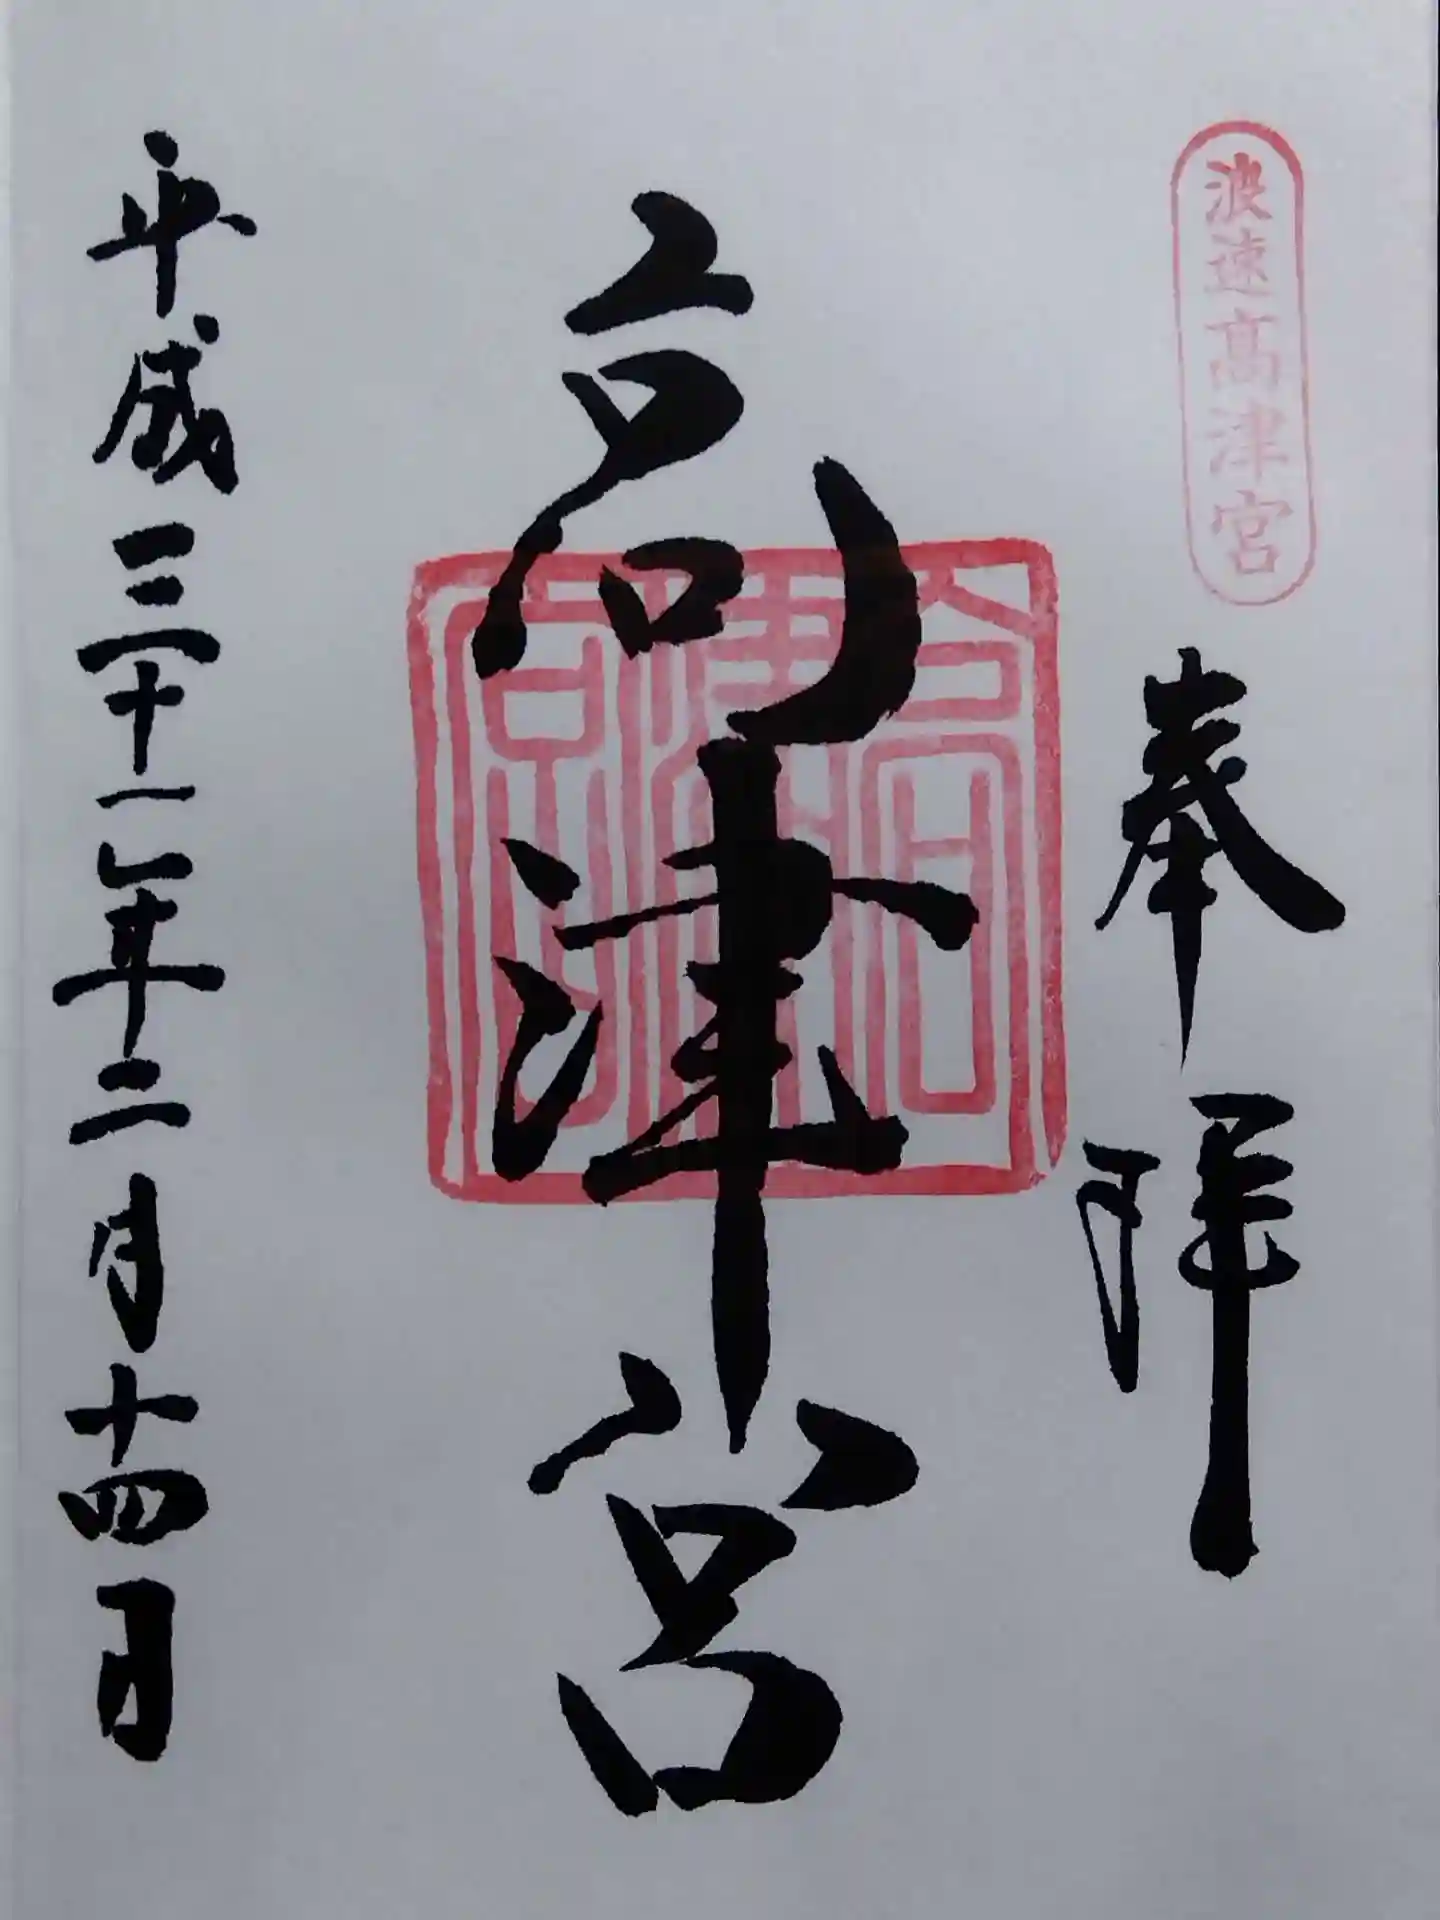 波速高津宮
奉拝
高津宮
高津宮
平成三十一年二月十四日